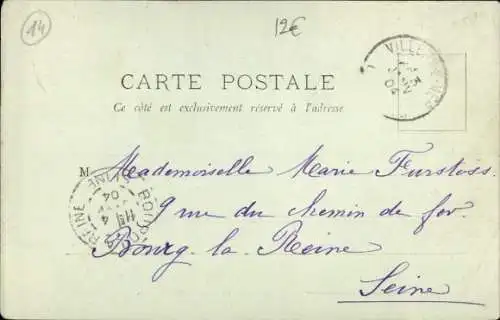 14
12€
VILLE
CARTE POSTALE
Ce côté est exclusivement réservé à l'adresse
M Mademoiselle Marie Furstoss
9 rue du chemin de fer
Bourg-la-Reine
Seine
REINE
BOURG
04